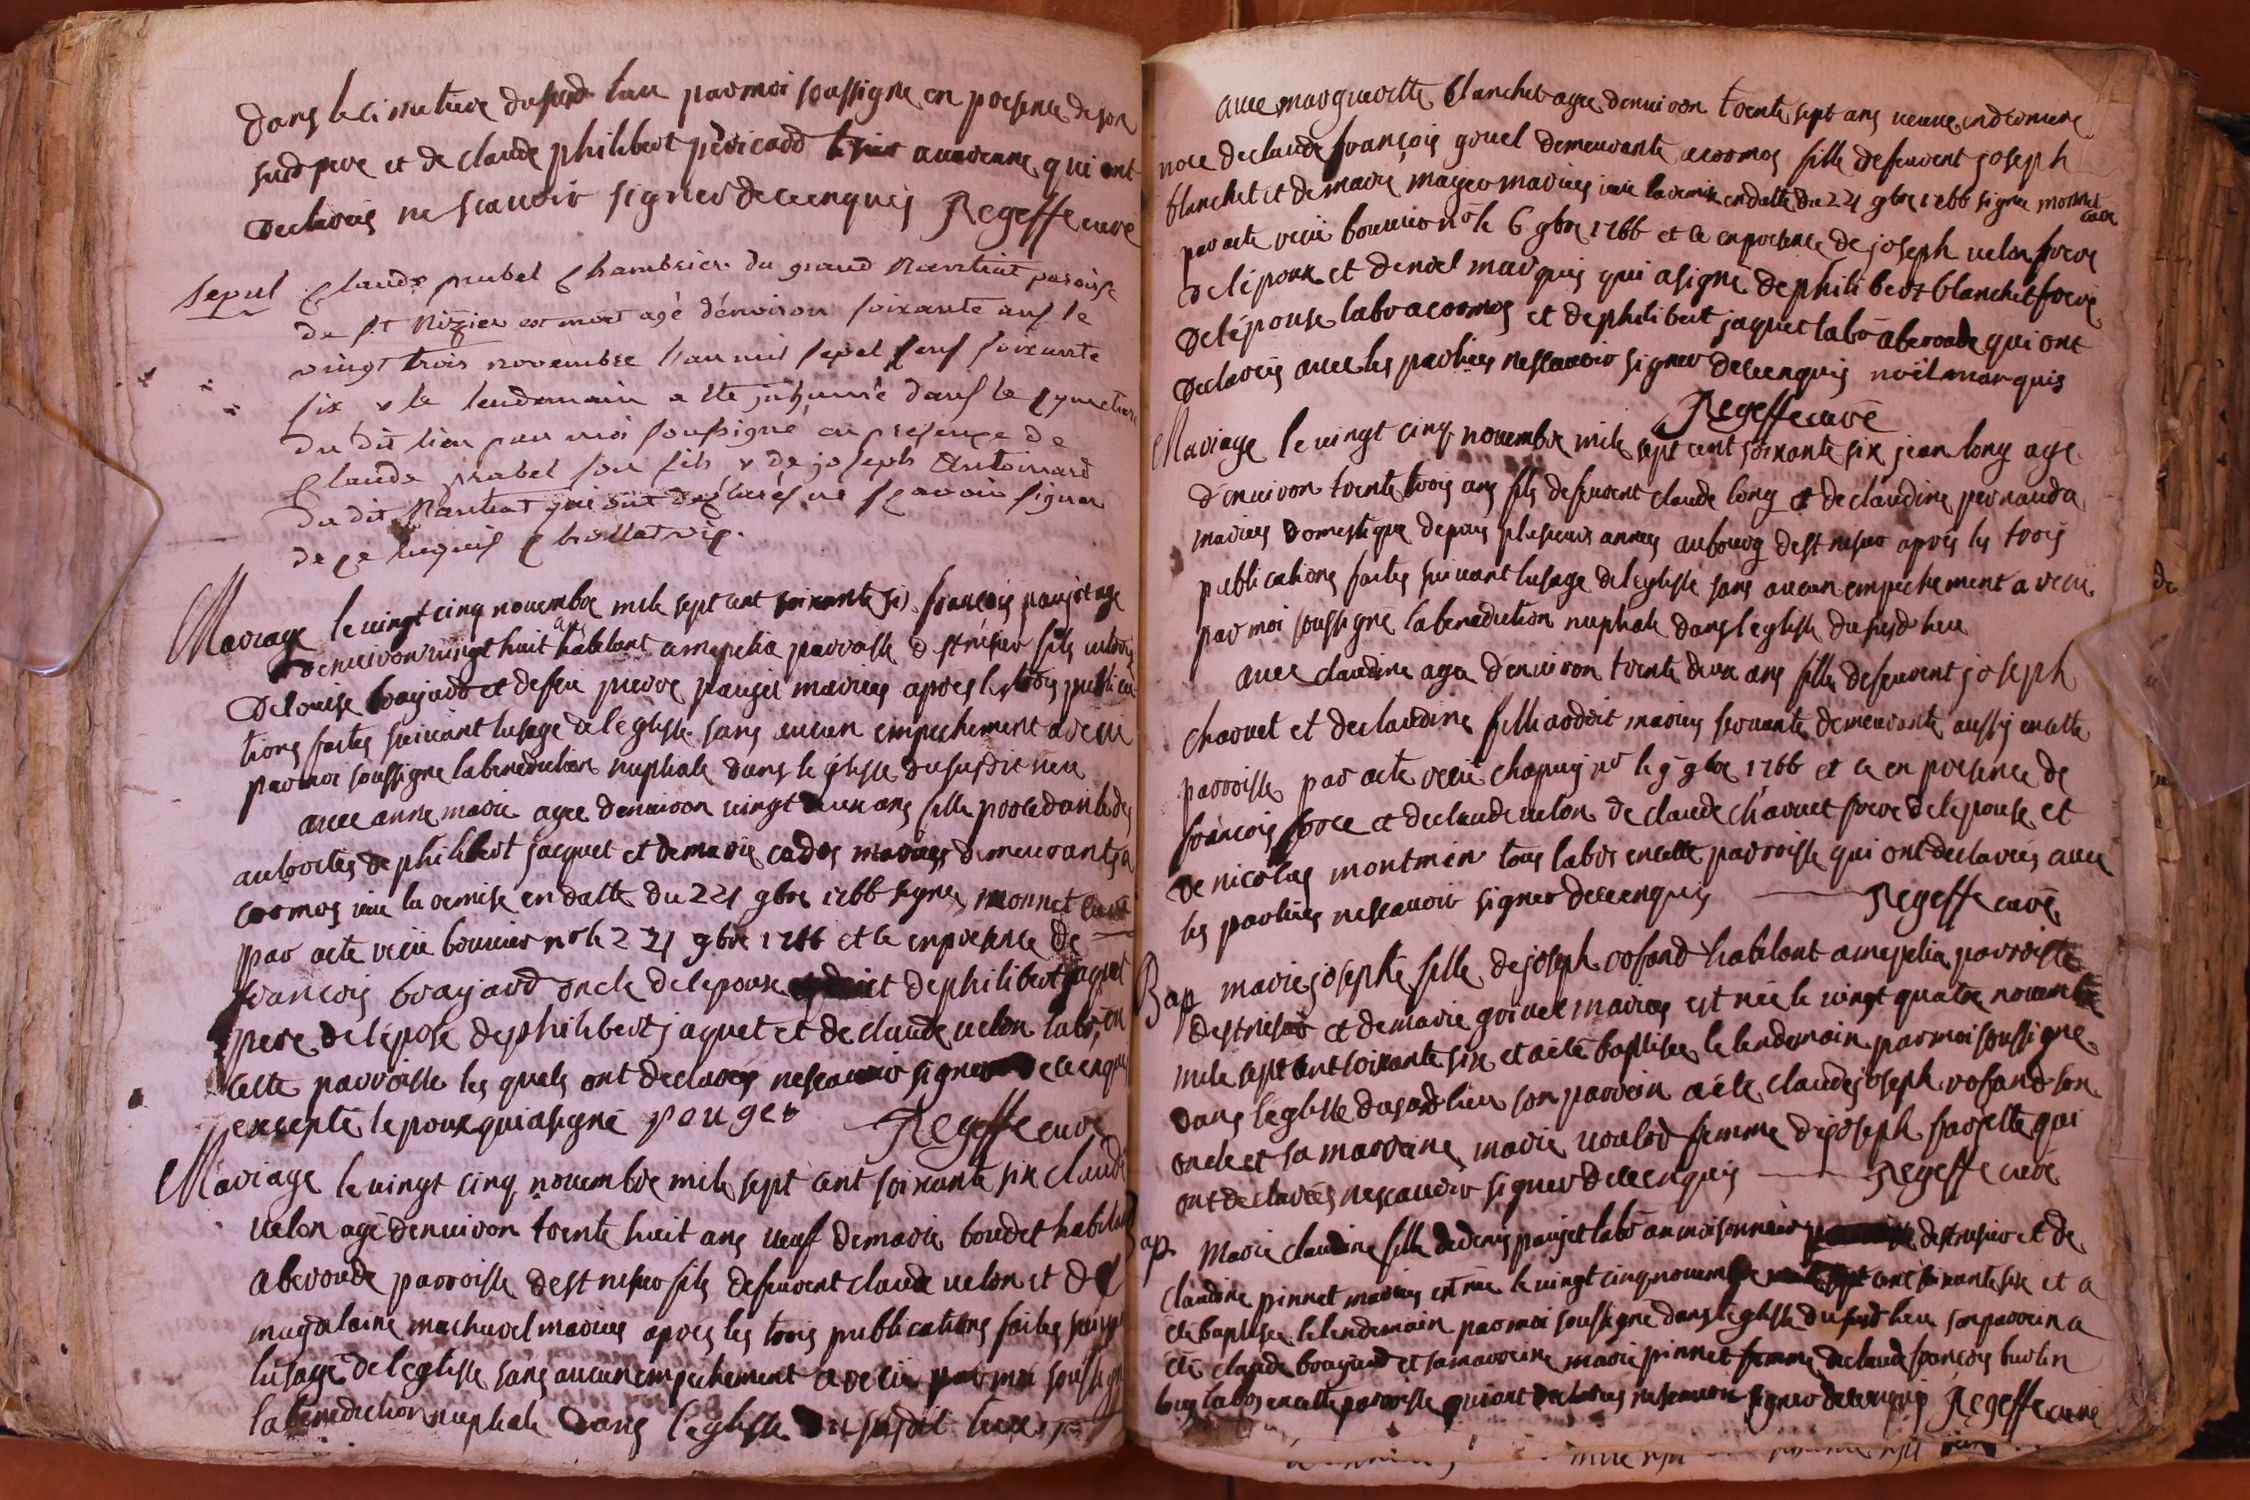 dans le cimetiere du susd lieu par moi soussigne en presence de son
susd pere et de claude philibert pericard qui ont
declarés ne scavoir signer de ce enquis Regeffe curé
Sepul Claude prabel Chambrier du grand Nantrat paroisse
de st Nizier est mort agé d'environ soixante ans le
vingt trois novembre l'an mil sept sens soixante
six & le lendemain a ete inhumé dans le cymetiere
du dit lieu par moi soussigné en presence de
Claude prabel son fils & de joseph Antoinard
du dit Nantrat qui ont déclarés ne sçavoir signer
de ce enquis
Mariage le vingt cinq novembre mile sept cent soixante six françois paujet age
d'environ vingt huit ans habitant a mepelia parroisse d st nisier fils
de louise brayard et de feu pierre paujet mariees apres les trois publica
tions faites suivant lusage de leglisse sans aucun empechement a recu
par moi soussigne la benediction nuptiale dans le glisse du susdit lieu
avec anne marie agee denviron vingt deux ans fille procedante des
autorites de philibert jacquet et de marie cados mariees demeurants a
cormos vue la remise en datte du 221 gbre 1766 signee monnet curé
par acte recu bouvier nre le 221 gbre 1766 et ce en presence de
francois brayard oncle de lepoux et de philibert jaquet
pere de lépose de philibert jaquet et de claude velon labrs en
cette parroisse les quels ont declarés ne scavoir signer de ce enquis
excepte lepoux qui a signé pauget Regeffe curé
Mariage le vingt cinq novembre mile sept cent soixante six claude
velon agé denviron trente huit ans veuf de marie boudet habitant
a beronde parroisse de st nisier fils de feuvent claude velon et de
magdelaine machurel mariees apres les trois publications faites suivant
lusage de leglisse sans aucun empechement a recu par moi soussigne
la benediction nuptiale dans leglisse du susdit lieu
avec margueritte blanchet agee denviron trente sept ans veuve
de claude françois gouel demeurante a cormos fille de feuvent joseph
blanchet et de marie mayer mariees vue la remise en datte du 221 gbre 1766 signee monnet curé
par acte recu bouvier nre le 6 gbre 1766 et ce en presence de joseph velon frere
de lépoux et de noel marquis qui a signé de philibert blanchet frere
de lépouse labr a cormos et de philibert jaquet labr a beronde qui ont
declarés avec les parties ne scavoir signer de ce enquis noël marquis
Regeffe curé
Mariage le vingt cinq novembre mile sept cent soixante six jean long agé
d'environ trente trois ans fils de feuvent claude long et de claudine pernauda
mariees domestique depuis plusieurs annees au bourg de st nisier après les trois
publications faites suivant lusage de leglisse sans aucun empechement a recu
par moi soussigné la benediction nuptiale dans leglisse du susd lieu
avec claudine agee d'environ trente deux ans fille de feuvent joseph
charvet et de claudine filliardoit mariees servante demeurante aussy en cette
parroisse par acte recu chapuy nre le 9 gbre 1766 et ce en presence de
françois et de claude velon de claude charvet frere de lepouse et
de nicolas montmin tous labrs en cette parroisse qui ont declarés avec
les parties ne scavoir signer de ce enquis Regeffe curé
Bap marie josephte fille de joseph rofand habitant a mepelia parroisse
de st nisier et de marie goivel mariees est née le vingt quatre novembre
mile sept cent soixante six et a été baptisee le lendemain par moi soussigne
dans leglisse du susd lieu son parrein a été claude joseph rofand son
oncle et sa marreine marie femme de joseph farjette qui
ont declarés ne scavoir signer de ce enquis Regeffe curé
Bap Marie claudine fille de denis paujet labr au moisonnier de st nisier et de
claudine pinnet mariees est née le vingt cinq novembre mile sept cent soixante six et a
été baptisee le lendemain par moi soussigne dans leglisse du susd lieu son parrein a
été claude brayard et sa marreine marie pinnet femme de claude françois burlin
tous labrs en cette parroisse qui ont declarés ne scavoir signer de ce enquis Regeffe curé